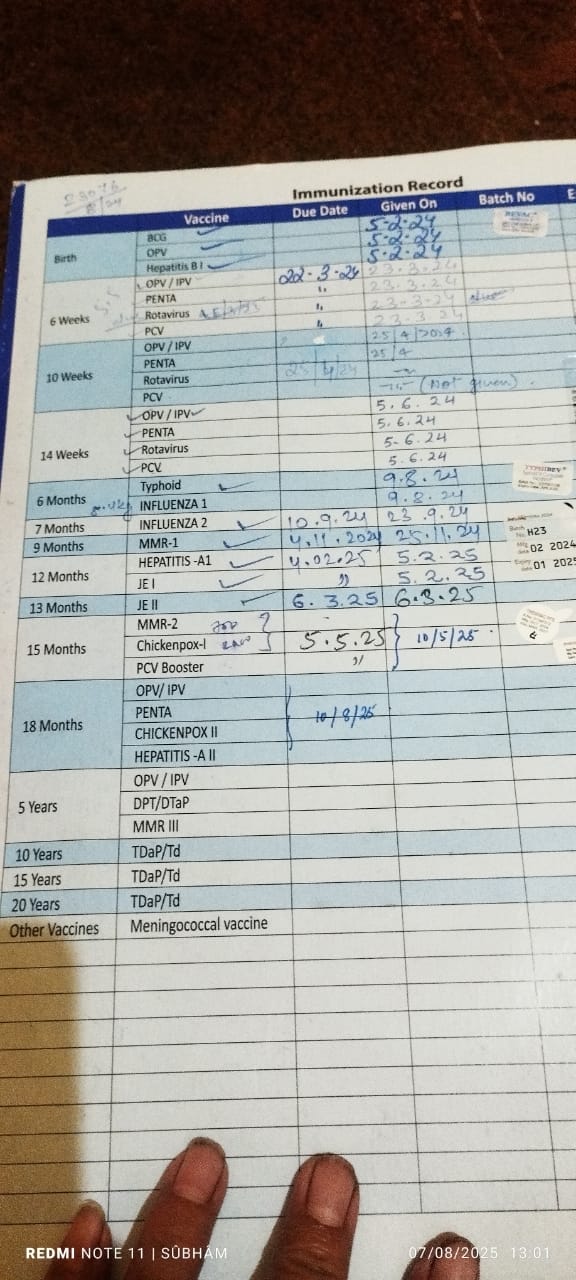 Immunization Record
Vaccine Due Date Given On Batch No E
Birth
BCG 5-2-24
OPV 5-2-24
Hepatitis B I 5-2-24
6 Weeks
OPV / IPV 22-3-24 23.3.24
PENTA " 23.3.24
Rotavirus " 23-3-24
PCV " 23.3.24
10 Weeks
OPV / IPV 25/4/2024
PENTA 25/4/24 25/4
Rotavirus
PCV (Not given).
14 Weeks
OPV / IPV 5.6.24
PENTA 5.6.24
Rotavirus 5-6.24
PCV 5.6.24
6 Months
Typhoid 9.8.24
INFLUENZA 1 9.8.24
7 Months INFLUENZA 2 10.9.24 23.9.24
9 Months MMR-1 4.11.2024 25.11.24
12 Months
HEPATITIS -A1 4.02.25 5.2.25
JE I " 5.2.25
13 Months JE II 6.3.25 6.3.25
15 Months
MMR-2
Chickenpox-I 5.5.25 10/5/25
PCV Booster "
18 Months
OPV/ IPV
PENTA 10/8/25
CHICKENPOX II
HEPATITIS -A II
5 Years
OPV / IPV
DPT/DTaP
MMR III
10 Years TDaP/Td
15 Years TDaP/Td
20 Years TDaP/Td
Other Vaccines Meningococcal vaccine
H23
02 2024
01 2025
REDMI NOTE 11 | SÛBHÂM 07/08/2025 13:01